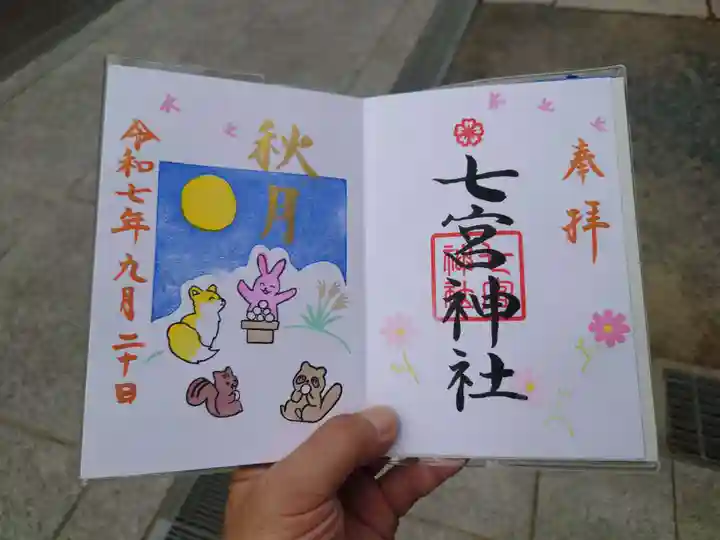 奉拝
七宮神社
七宮神社
秋月
令和七年九月二十日